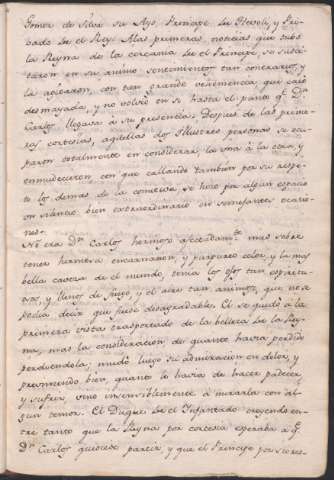 Gomez de Silva su Ayo, Principe de Hevoli, y Pri-
bado de el Rey. A las primeras noticias que tubo
la Reyna de la cercania de el Principe, se susci-
taron en su animo sentimientos tan contrarios, y
la agitaron, con tan grande vehemencia que caió
desmayada, y no volvió en si hasta el punto q.e D.n
Carlos llegava a su presencia. Despues de las prime-
ras cortesias, aquellas dos Illustres personas se ocu-
paron totalmente en considerar la una à la otra, y
enmudecieron con que callando tambien por su respe-
to los demas de la comitiva se hizo por algun espacio
un silencio bien extraordinario en semejantes ocacio-
nes.
No era D.n Carlos hermoso mas sobre
tener hermosa encarnacion, y purpureo color, y la mas
bella caveza de el mundo, tenia los ojos tan espiritu-
osos, y llenos de fuego, y el aire tan animoso, que no se
podia decir que fuese desagradable. El se quedó a la
primera vista trasportado de la belleza de la Rey-
na, mas la consideracion de quanto havia perdido
perdiendola, mudó luego su admiracion en dolor, y
previniendo bien, quanto le havia de hacer padecer,
y sufrir, vino insensiblemente à mirarla con al-
gun temor. El Duque de el Infantado creyendo en-
tre tanto que la Reyna por cortesia esperaba a q.e
D.n Carlos quisiese partir, y que el Principe por su res-